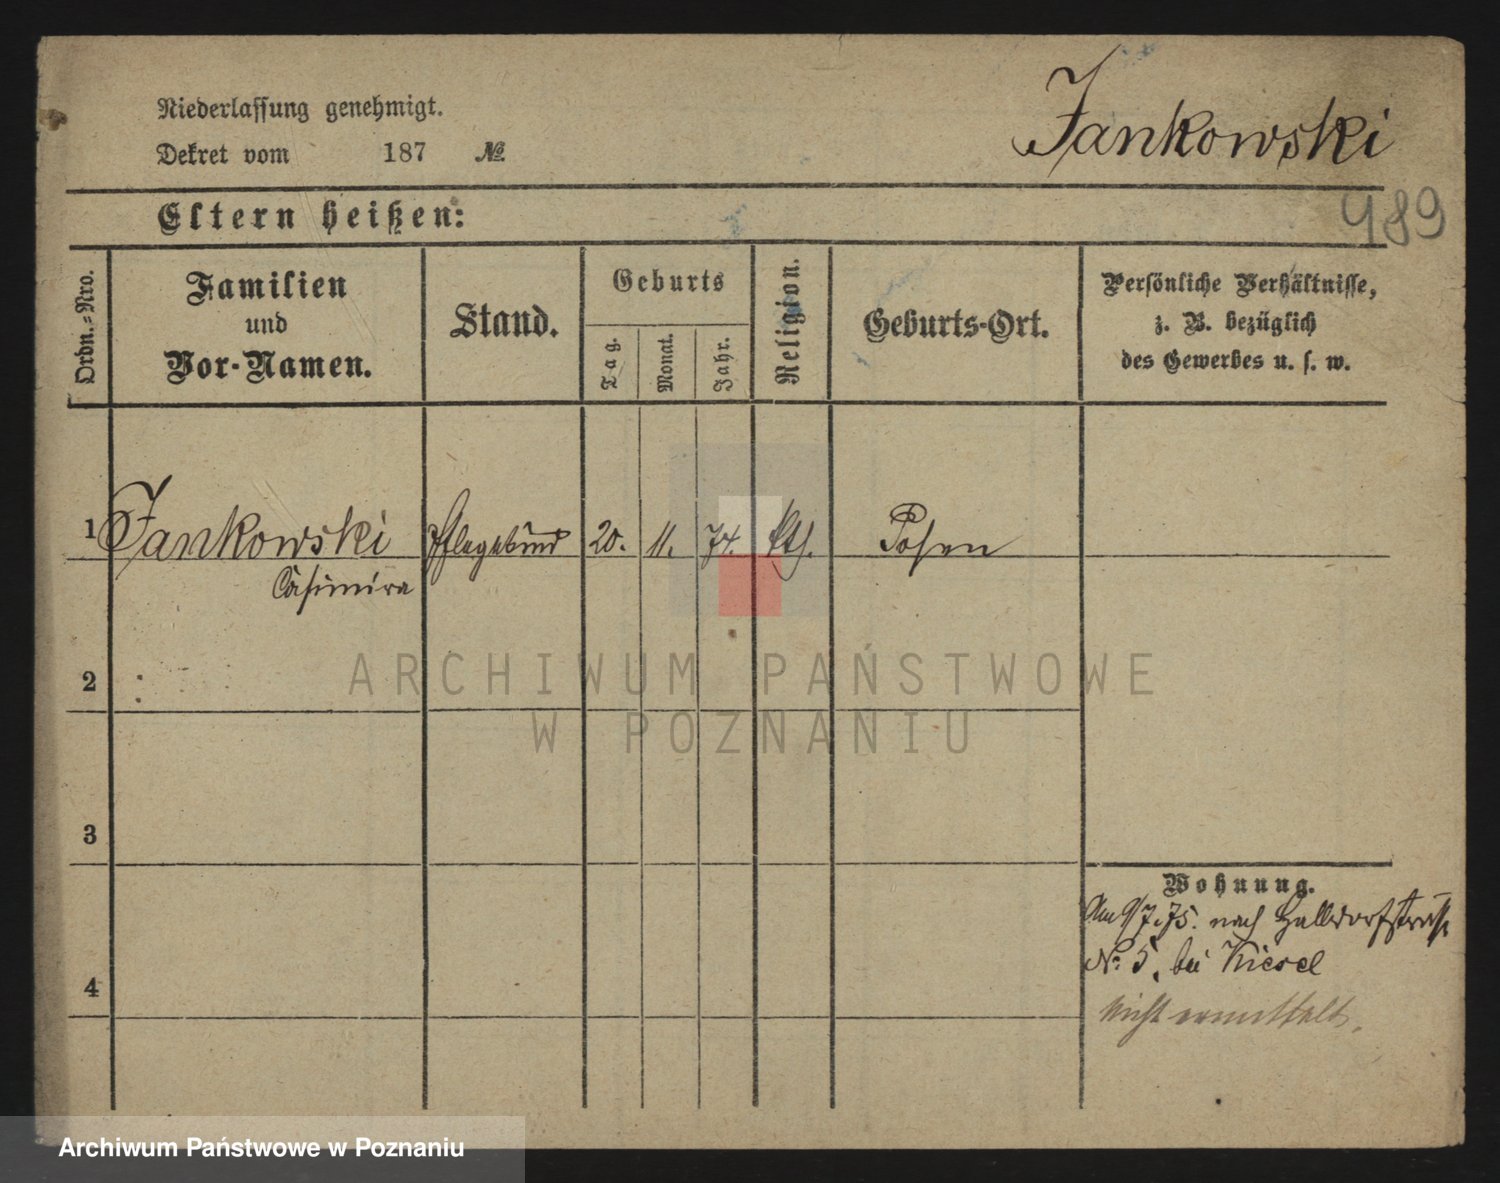 Niederlassung genehmigt.
Dekret vom 187 №
Jankowski
489
Eltern heißen:
Ordn.-Nro.
Familien
und
Vor-Namen.
Stand.
Geburts
Tag.
Monat.
Jahr.
Religion.
Geburts-Ort.
Persönliche Verhältnisse,
z. B. bezüglich
des Gewerbes u. s. w.
1 Jankowski Pflegekind 20. 11. 74. kth. Posen
Casimira
2
3
4
Wohnung.
Am 9/7. 75. nach Halbdorfstrasse
No. 5, bei Kiesel
nicht ermittelt.
ARCHIWUM PAŃSTWOWE
W POZNANIU
Archiwum Państwowe w Poznaniu